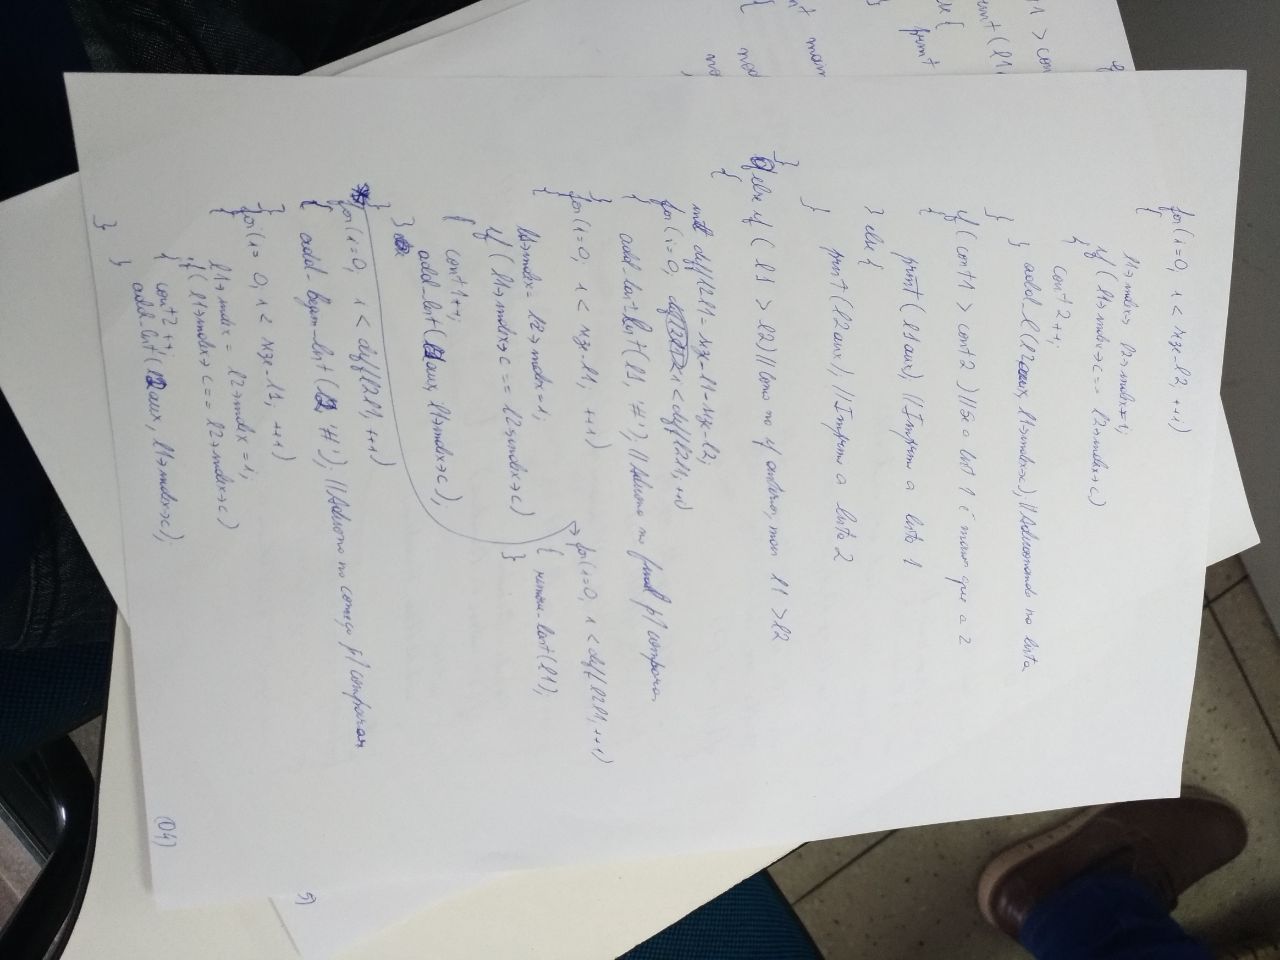 for(i=0; i < size-l2, ++i)
{
l1->index= l2->index=i;
if ( l1->index->c == l2->index->c)
{
cont2++;
add_l(l2aux, l1->index->c); //Adicionando na lista
}
}
if(cont1 > cont2) //Se a list 1 é maior que a 2
{
print(l1aux); //Imprime a lista 1
} else {
print(l2aux); //Imprime a lista 2
}
}
else if ( l1 > l2) //Como no if anterior, mas l1 > l2
{
int diffl2l1= size-l1-size-l2;
for(i=0; i < diffl2l1; ++i)
{ add-last-list(l1, '#'); //Adiciono no final p/ comparar
}
for(i=0; i < size-l1; ++i)
{
l1->index= l2->index=i;
if ( l1->index->c == l2->index->c)
{
cont1++;
add_list(l1aux, l1->index->c);
}
}
-> for(i=0, i < diffl2l1, ++i)
{ remove-last(l1);
}
* for(i=0; i < diffl2l1, ++i)
{ add-Begin-list(l2, '#'); //Adiciono no começo p/ comparar
}
for(i=0; i < size-l1; ++i)
{
l1->index = l2->index =i;
if( l1->index->c == l2->index->c)
{ cont2++;
add_list(l2aux, l1->index->c);
}
}
(04)
5)
1 > con
print(l1,
se {
print
}
nt main
{ nod
no